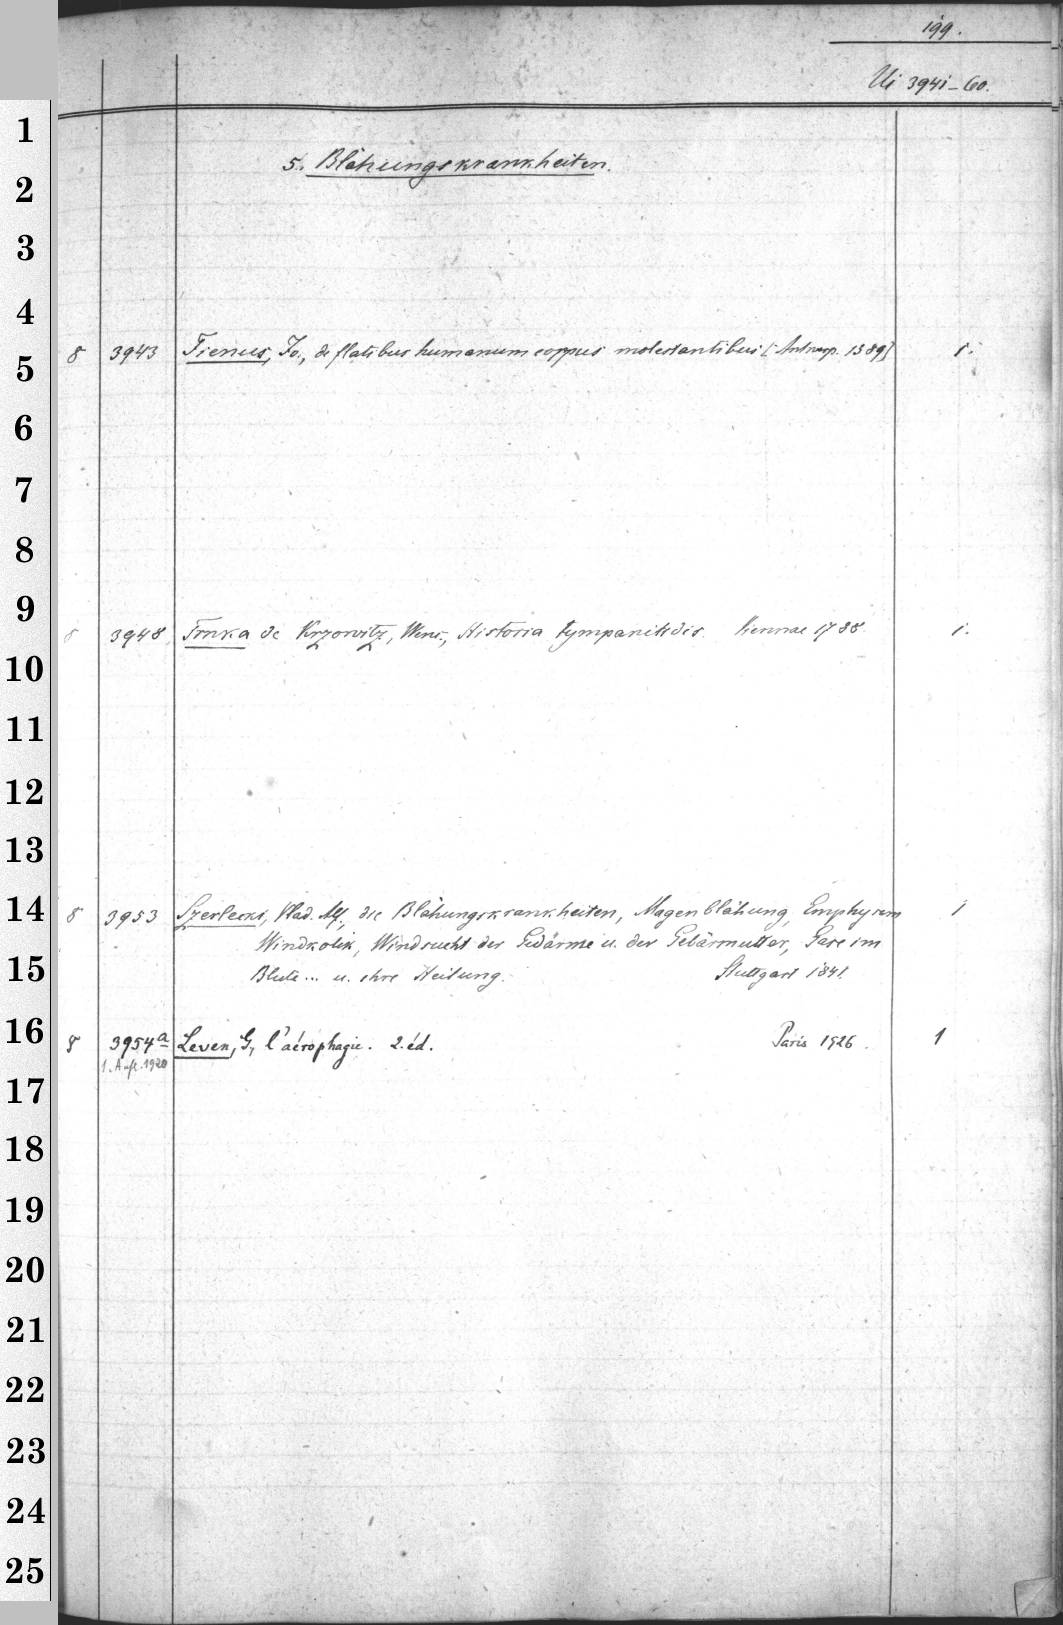 199.
Ui 3941-60.
1
5. Blähungskrankheiten.
2
3
4
8 3943 Fienus, Jo., de flatibus humanum corpus molestantibus [Antwerp. 1589] 1.
5
6
7
8
9
8 3948 Trnka de Krzowitz, Wenc., Historia tympanitidis. Viennae 1788 1.
10
11
12
13
14 8 3953 Szerlecki, Vlad. Alf., die Blähungskrankheiten, Magenblähung, Emphysem 1
Windkolik, Windsucht der Gedärme u. der Gebärmutter, Gase im
15 Blute... u. ihre Heilung. Stuttgart 1841.
16 8 3954a Leven, G, l'aérophagie. 2. éd. Paris 1926. 1
1. Aufl. 1920
17
18
19
20
21
22
23
24
25